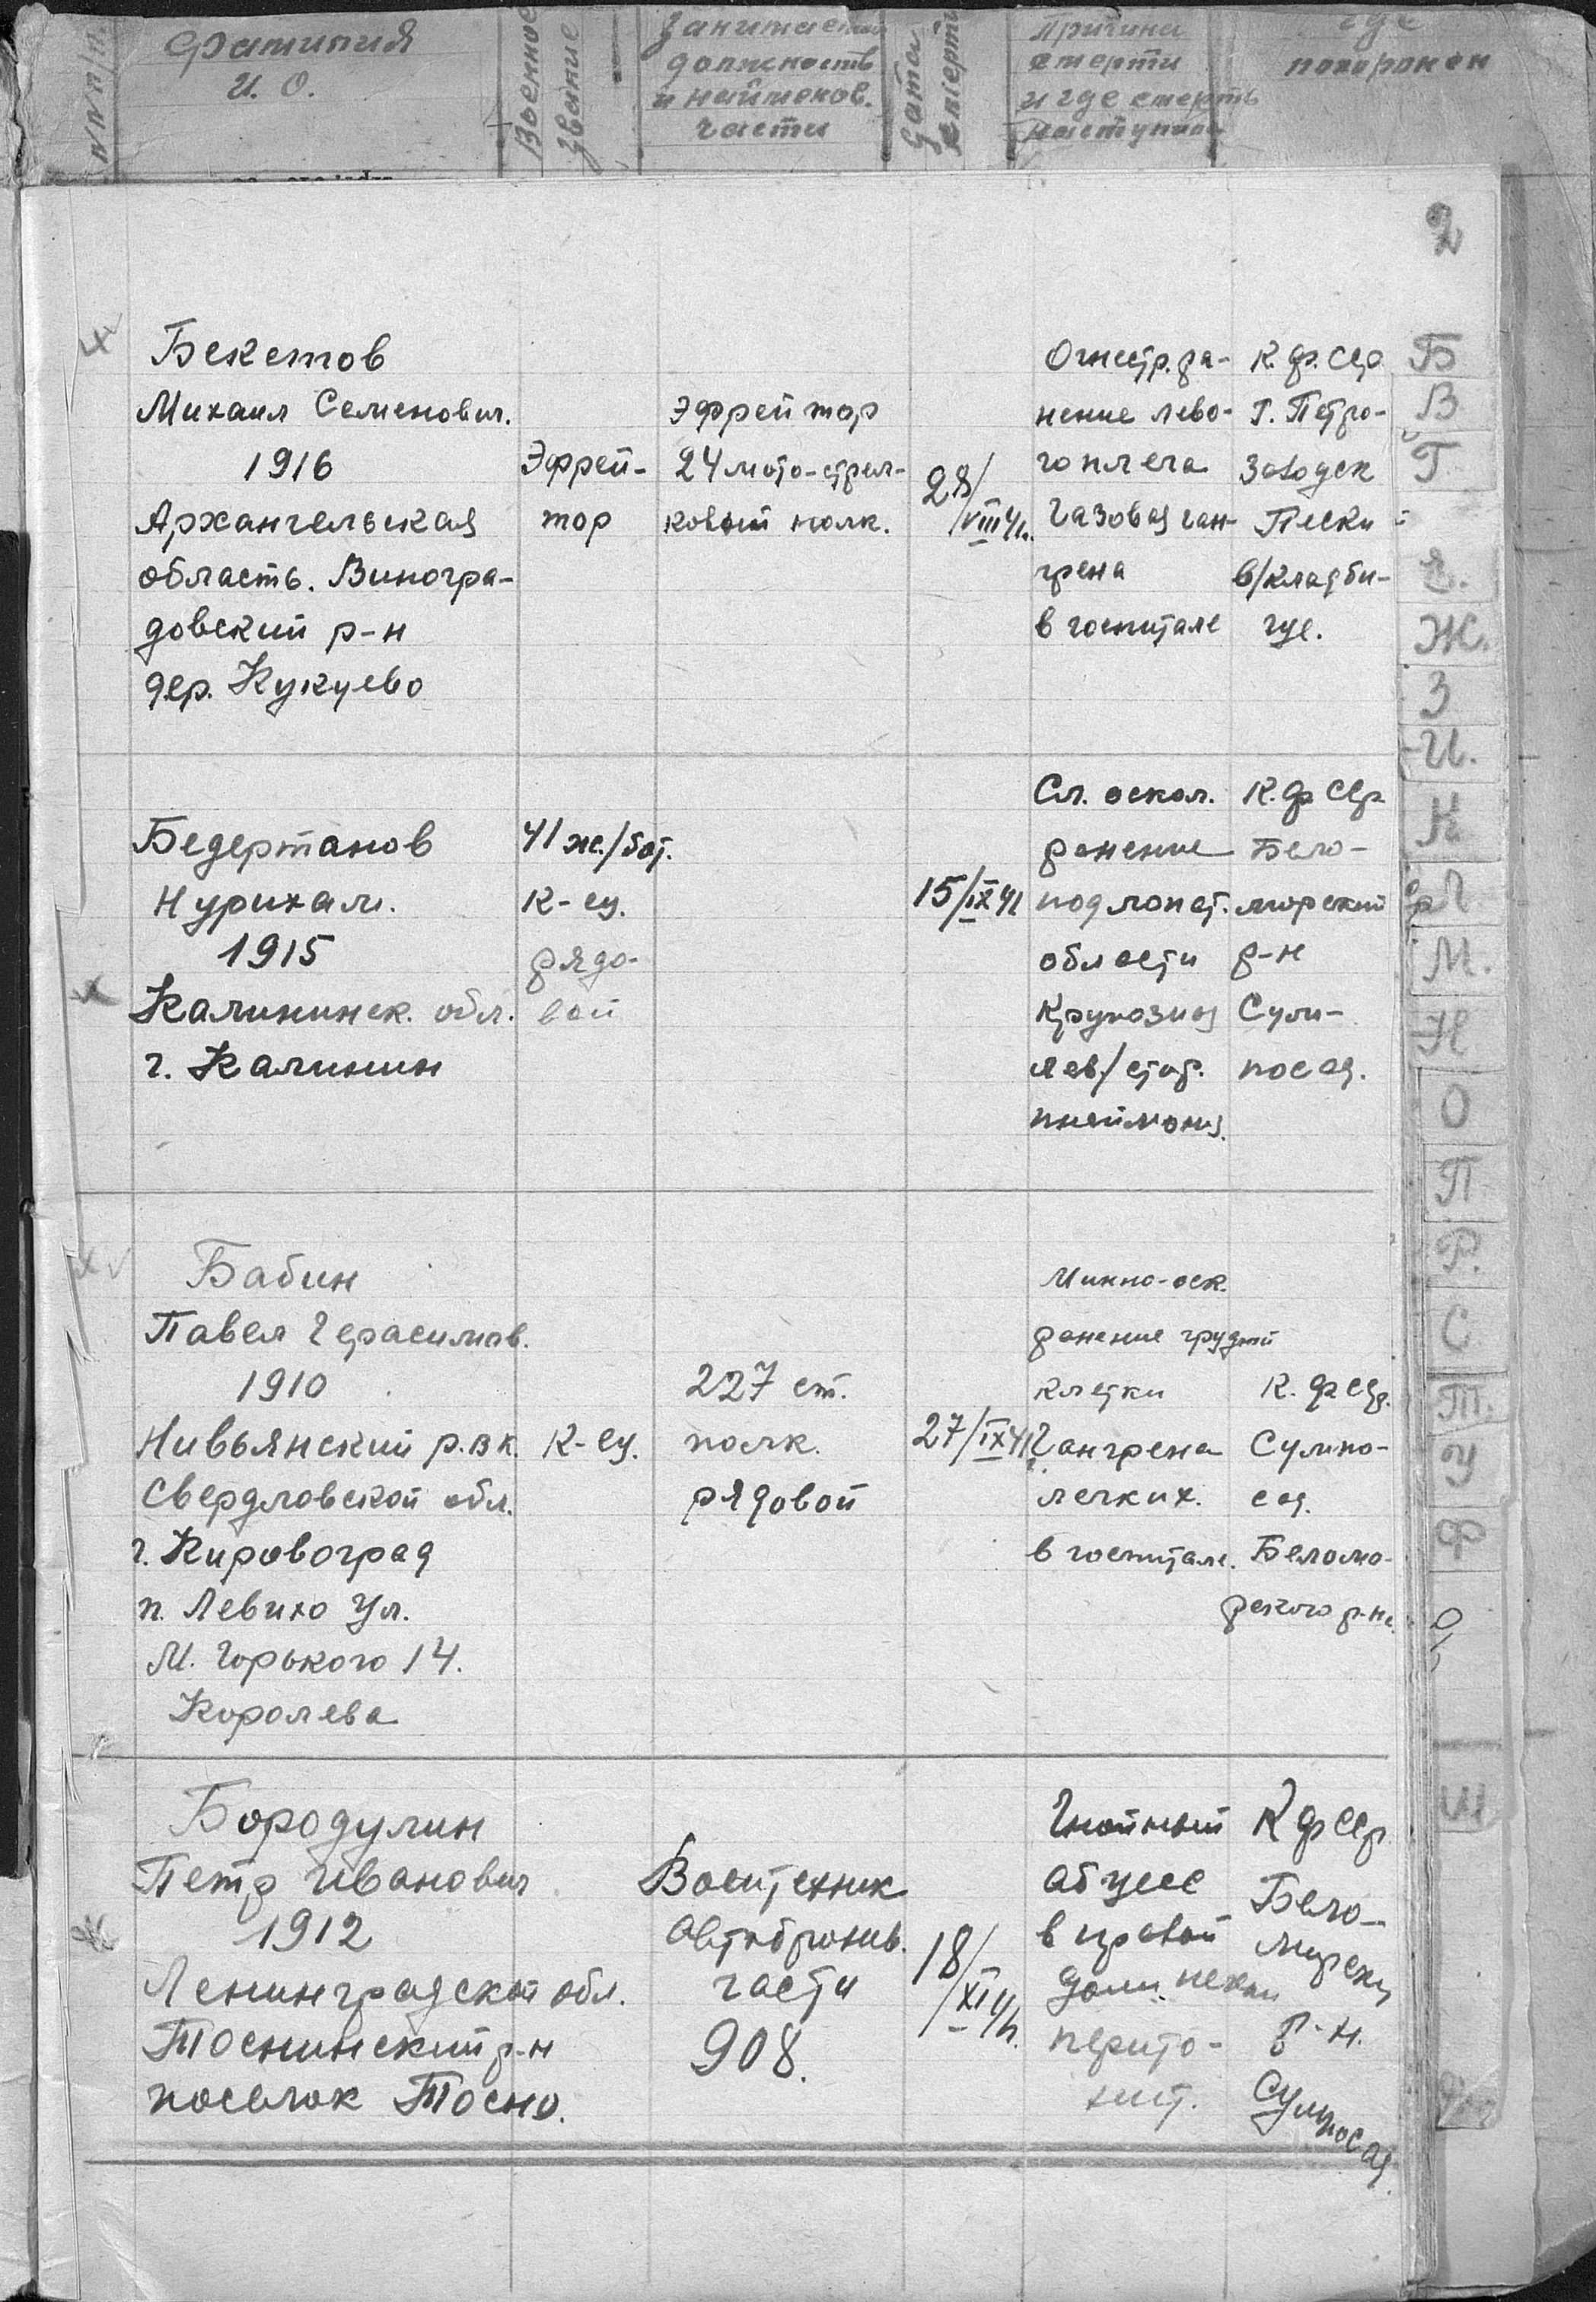 №№ п/п.
Фамилия
И. О.
Военное
звание
Занимаемая
должность
и наименов.
части
Дата
смерти
Причина
смерти
и где смерть
наступила
где
похоронен
2
Бекетов
Михаил Семенович.
1916
Архангельская
область. Виногра-
довский р-н
дер. Кукуево
Эфрей-
тор
Эфрейтор
24 мото-стрел-
ковый полк.
28/
VIII 41.
Огнестр. ра-
нение лево-
го плеча
Газовая ган-
грена
в госпитале
К.Ф.ССР
г. Петро-
заводск
Пески
в/кладби-
ще.
Бедертанов
Нурихам.
1915
Калининск. обл.
г. Калинин
41 ж./бат.
к-ец.
рядо-
вой
15/IX 41
Сл. оскол.
ранение
подлопат.
области
Крупозная
лев/стор.
пнеймония.
К.Ф ССР
Бело-
морский
р-н
Сум-
посад.
Бабин
Павел Герасимов.
1910
Нивьянский р.в к.
Свердловской обл.
г. Кировоград
п. Левихо ул.
М. Горького 14.
Королева
К-ец.
227 ст.
полк.
рядовой
27/IX 41
Минно-оск.
ранение грудной
клетки
Гангрена
легких.
в госпитале.
К. Ф ССР.
Сумпо-
сад.
Беломо-
рского р-на
Бородулин
Петр Иванович
1912
Ленинградской обл.
Тоснинский р-н
поселок Тосно.
Воентехник
автобронев.
части
908.
18/
XI 41.
Гнойный
абцесс
в правой
перито-
нит.
К Ф ССР
Бело-
морский
р-н.
Сумпосад.
Б
В
Г
Е.
Ж.
З
И.
К
Л
М.
Н
О
П
Р.
С
Т.
У
Ф
Ш